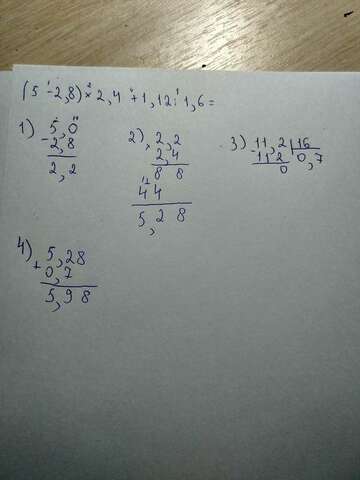 (5 - 2,8) × 2,4 + 1,12 : 1,6 =
1) 5,0
- 2,8
2,2
2) × 2,2
2,4
8 8
4 4
5,2 8
3) - 11,2 | 16
11 2 | 0,7
0
4) + 5,28
0,7
5,98